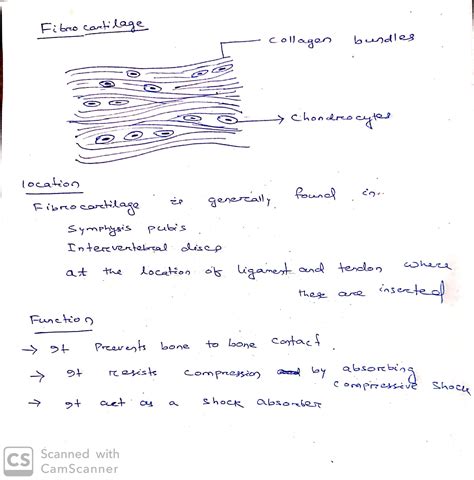 Fibro cartilage
collagen bundles
Chondrocytes
location
Fibrocartilage is generally found in.
Symphysis pubis
Intervertebral discs
at the location of ligament and tendon where
they are inserted
Function
→ It Prevents bone to bone contact.
→ It resists compression by absorbing
compressive shock
→ It act as a shock absorber
CS Scanned with
CamScanner